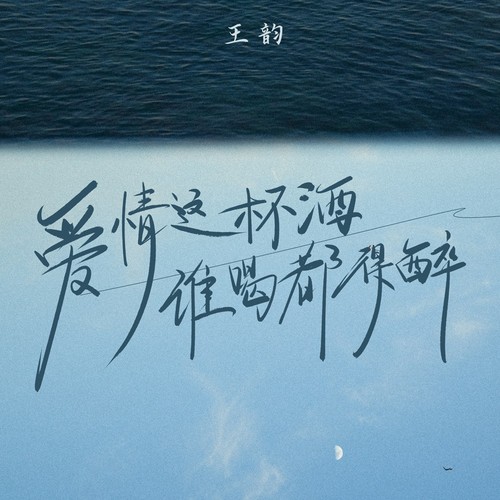 王韵
爱情这杯酒
谁喝都得醉